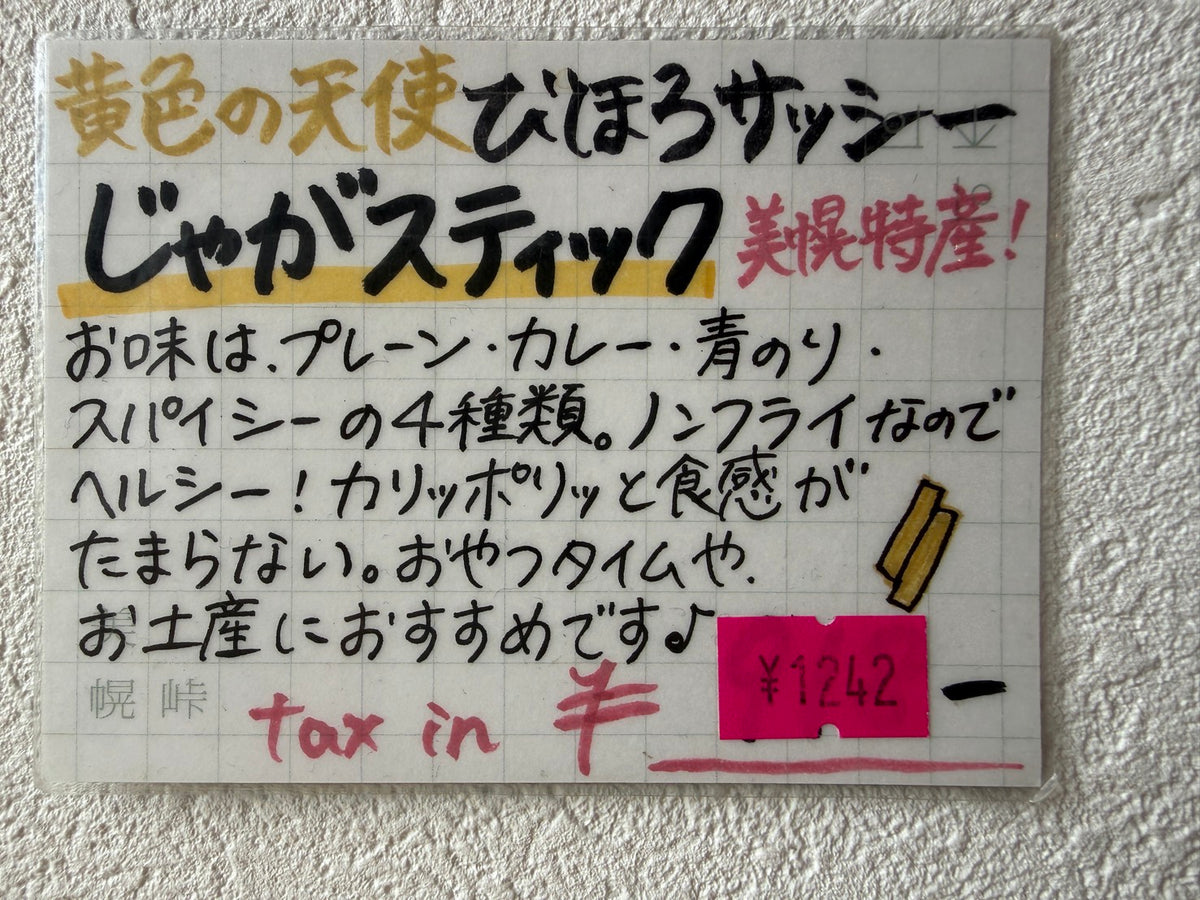 黄色の天使びほろサッシー
じゃがスティック 美幌特産!
お味は、プレーン・カレー・青のり・
スパイシーの4種類。ノンフライなので
ヘルシー!カリッポリッと食感が
たまらない。おやつタイムや、
お土産におすすめです♪
幌 峠
tax in ¥ ¥1242 ー